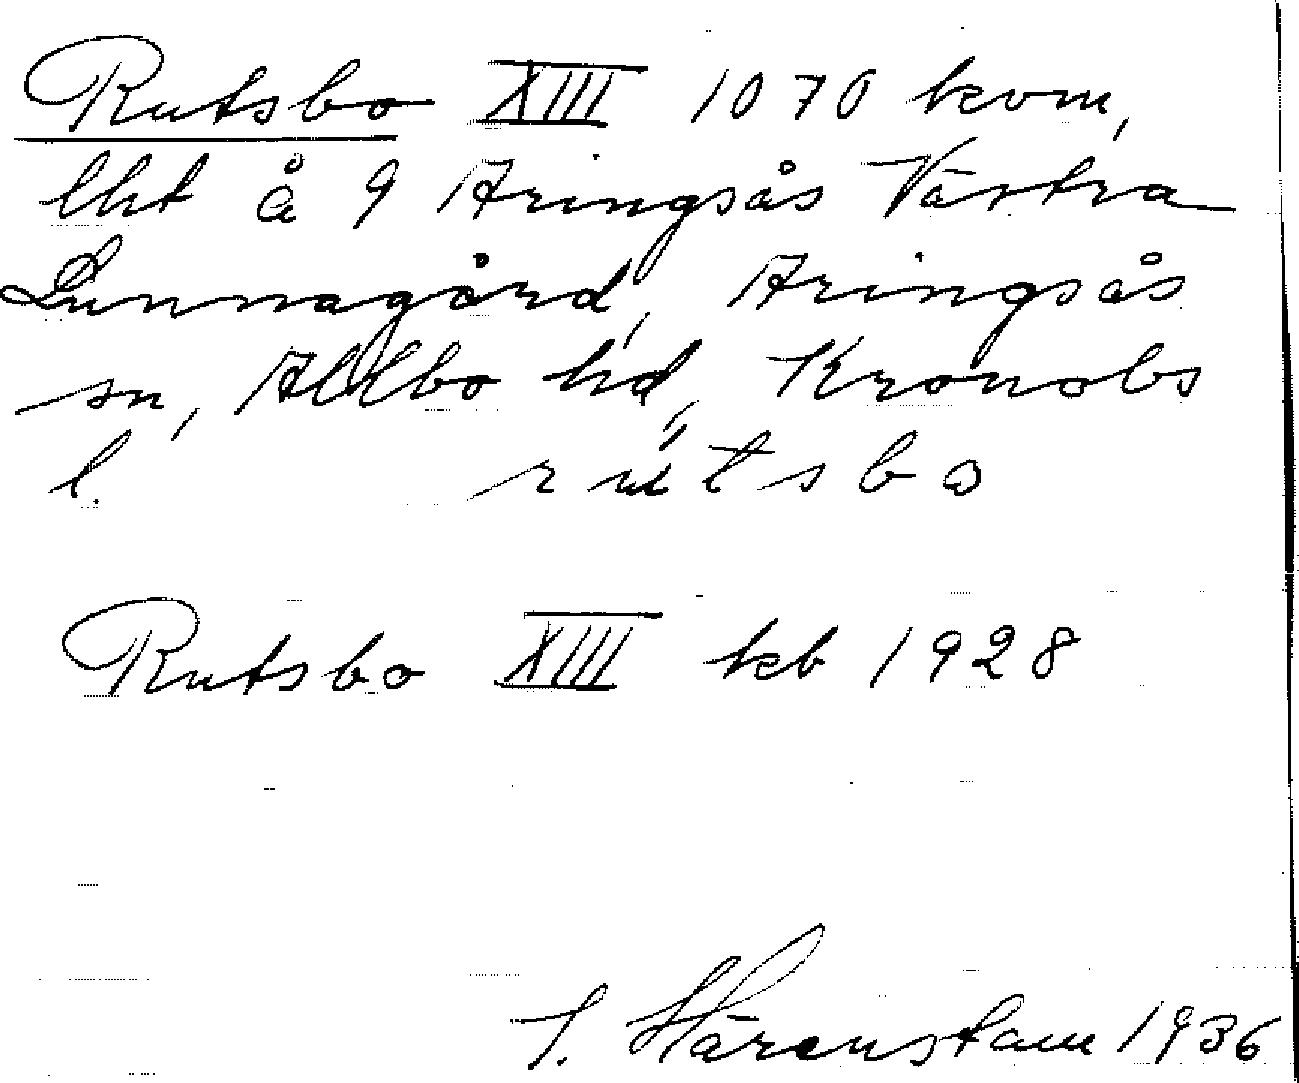 Rutsbo XIII 1070 kvm,
lht å 9 Aringsås Västra
Lunnagård, Aringsås
sn, Allbo hd, Kronobs
l. rütsbo
Rutsbo XIII kb 1928
Härenstam 1936